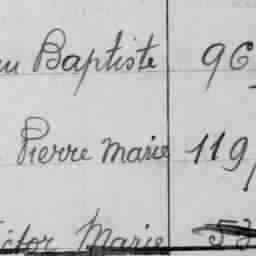 Baptiste 96
Pierre Marie 119
Marie